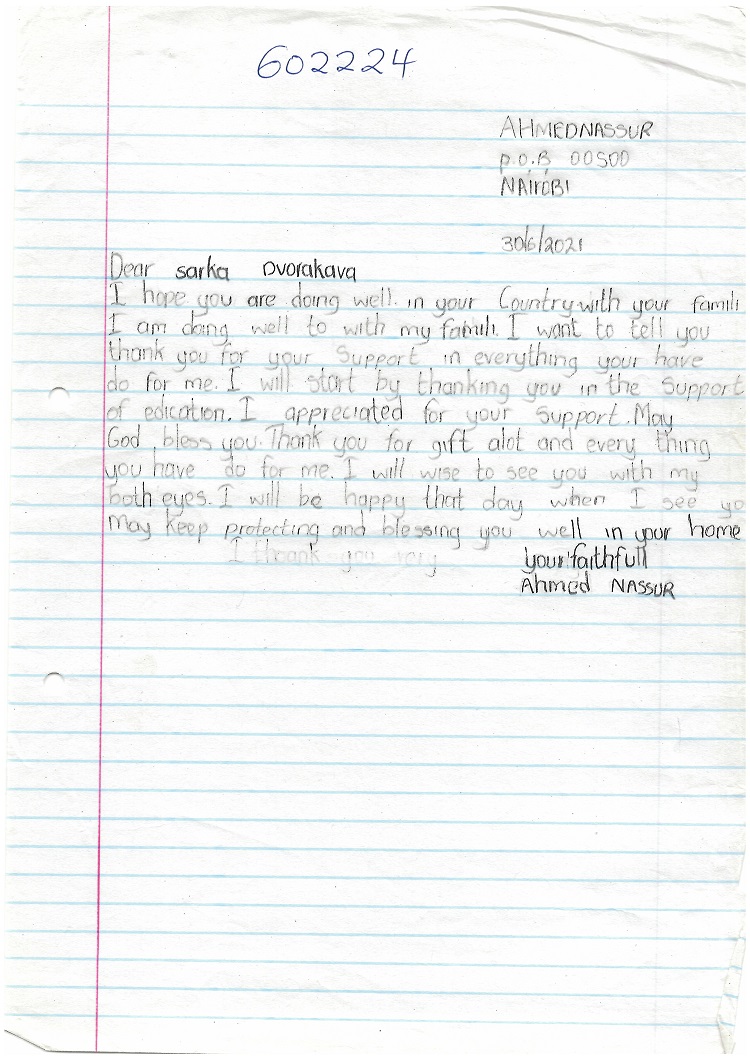 602224
AHMEDNASSUR
p.o.B 00500
NAIROBI
30/6/2021
Dear sarka Dvorakava
I hope you are doing well. in your Country with your famili
I am doing well to with my famili. I want to tell you
thank you for your Support in everything your have
do for me. I will start by thanking you in the Support
of edication. I appreciated for your Support. May
God bless you. Thank you for gift alot and every thing
you have do for me. I will wise to see you with my
both eyes. I will be happy that day when I see yo
may keep protecting and blessing you well in your home
I thoank you very your faithfull
Ahmed NASSUR